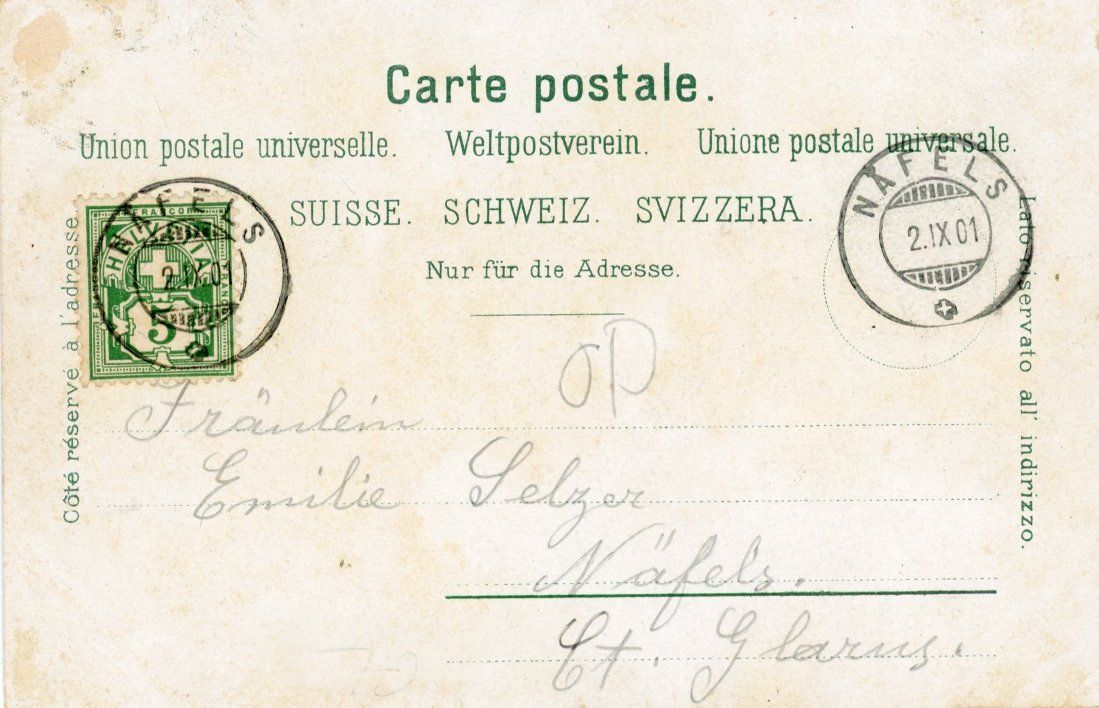 Carte postale.
Union postale universelle. Weltpostverein. Unione postale universale.
SUISSE. SCHWEIZ. SVIZZERA.
Nur für die Adresse.
Côté réservé à l'adresse.
Lato riservato all' indirizzo.
FRANCO
HELVETIA
5
NÄFELS
2.IX.01
NÄFELS
2.IX.01
Fräulein
Emilie Selzer
Näfels.
Ct. Glarus.